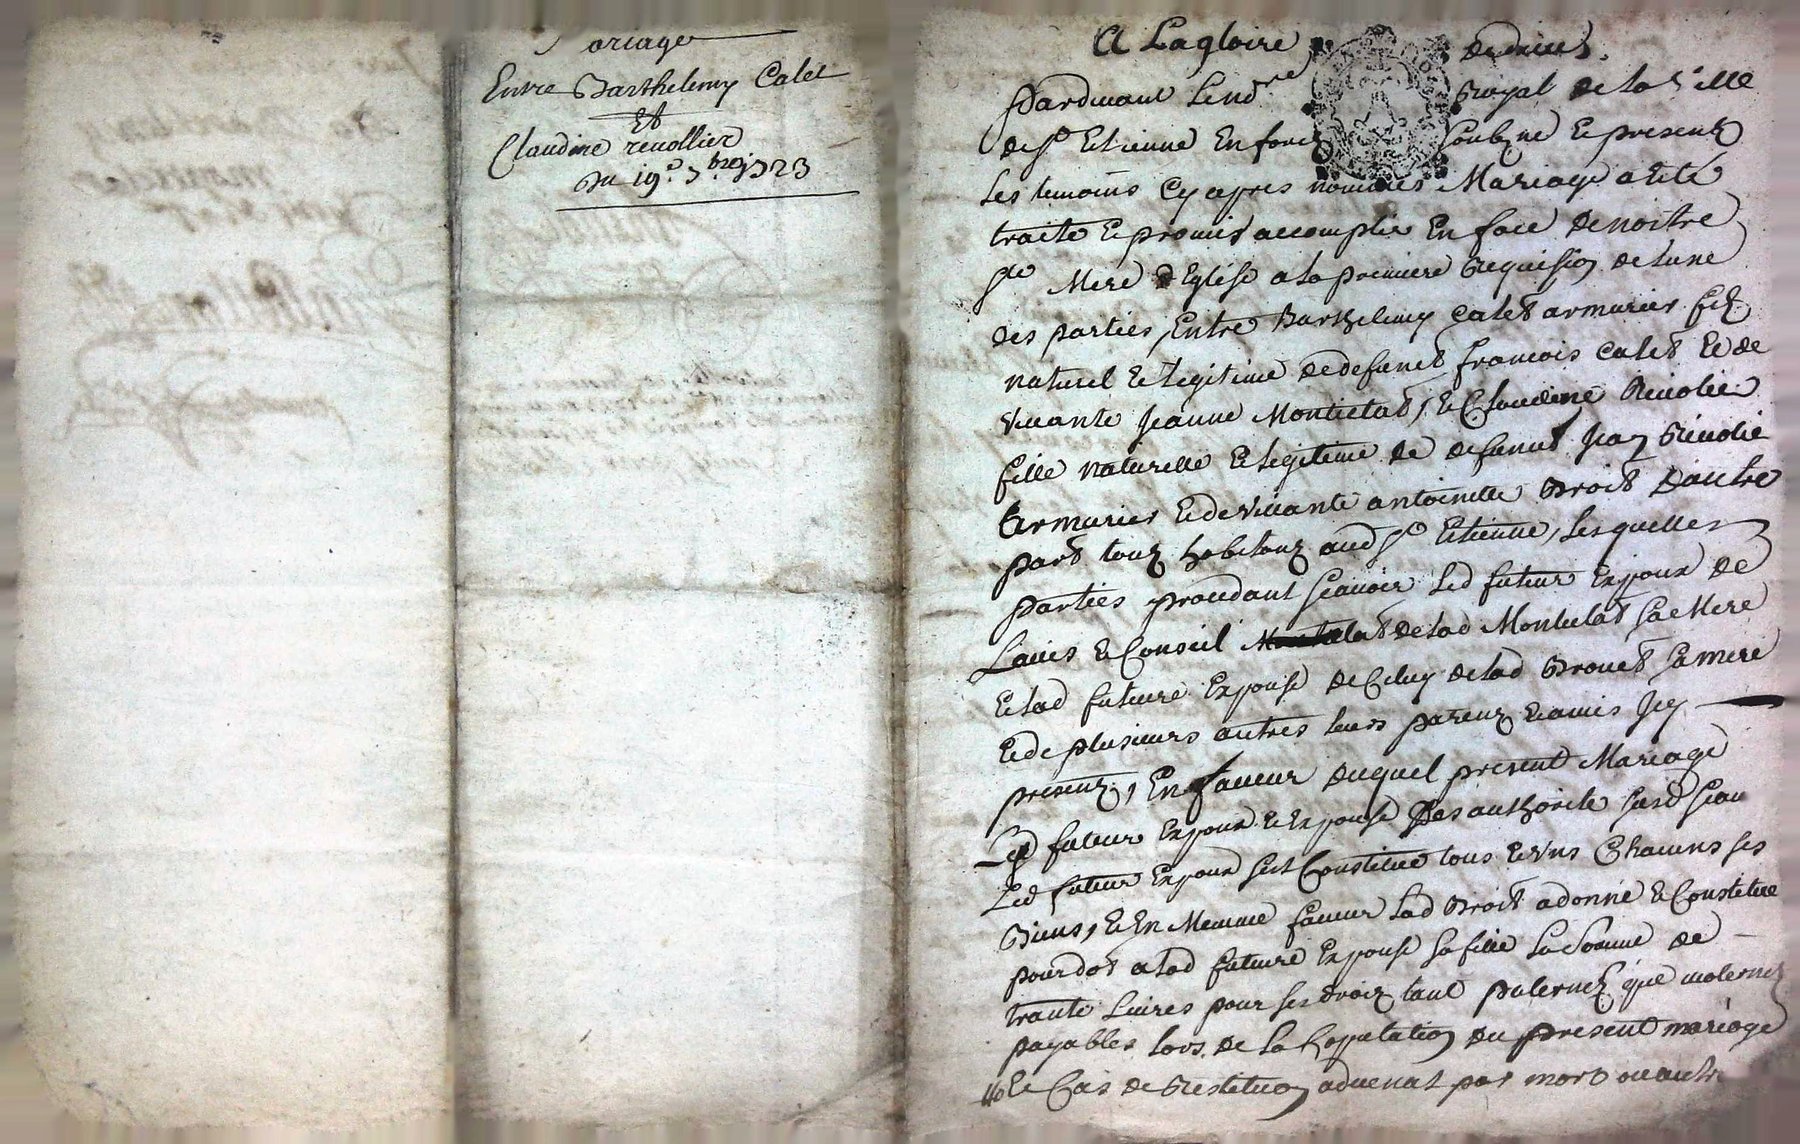 Mariage
Entre Barthelemy Calet
Et
Claudine reuollier
Du 19e 7bre 1723
A La gloire de dieu
Pardeuant Le nore Royal de la Ville
de St Etienne En forez Soubzné et presentz
Les temoins Cy apres nommés Mariage a eté
traite et promis accomplir En face de nostre
Ste Mere Eglise a la premiere Requision de lune
des parties, Entre Barthelemy Calet armurier filz
naturel et legitime de defunct francois Calet et de
viuante Jeanne Montelat, et Claudine Reuolier
fille naturelle et legitime de defunct Jean Reuolié
Armurier et de viuante antoinette Droit D'autre
part tous habitantz aud St Etienne, Lesquelles
parties procedant Scauoir Led futeur Expoux de
Lauis et Conseil de lad Montelat Sa Mere
et lad future Expouse de Celuy de lad Drouet Sa mere
et de plusieurs autres leurs parentz et amis Icy
presentz, En faueur duquel present Mariage
Led futeur Expoux et Expouse Pas authorite
Led futeur Expoux sest Constitué tous et Uns Chacuns ses
Biens, et En Mesme faueur Lad Droit a donné et Constitue
pour dot a lad future Expouse Sa fille La Somme de
trante Liures pour ses droitz tant paternelz que maternelz
payables lors de la Copulation du present mariage
et Cas de Restitution aduenat par mort ou autre